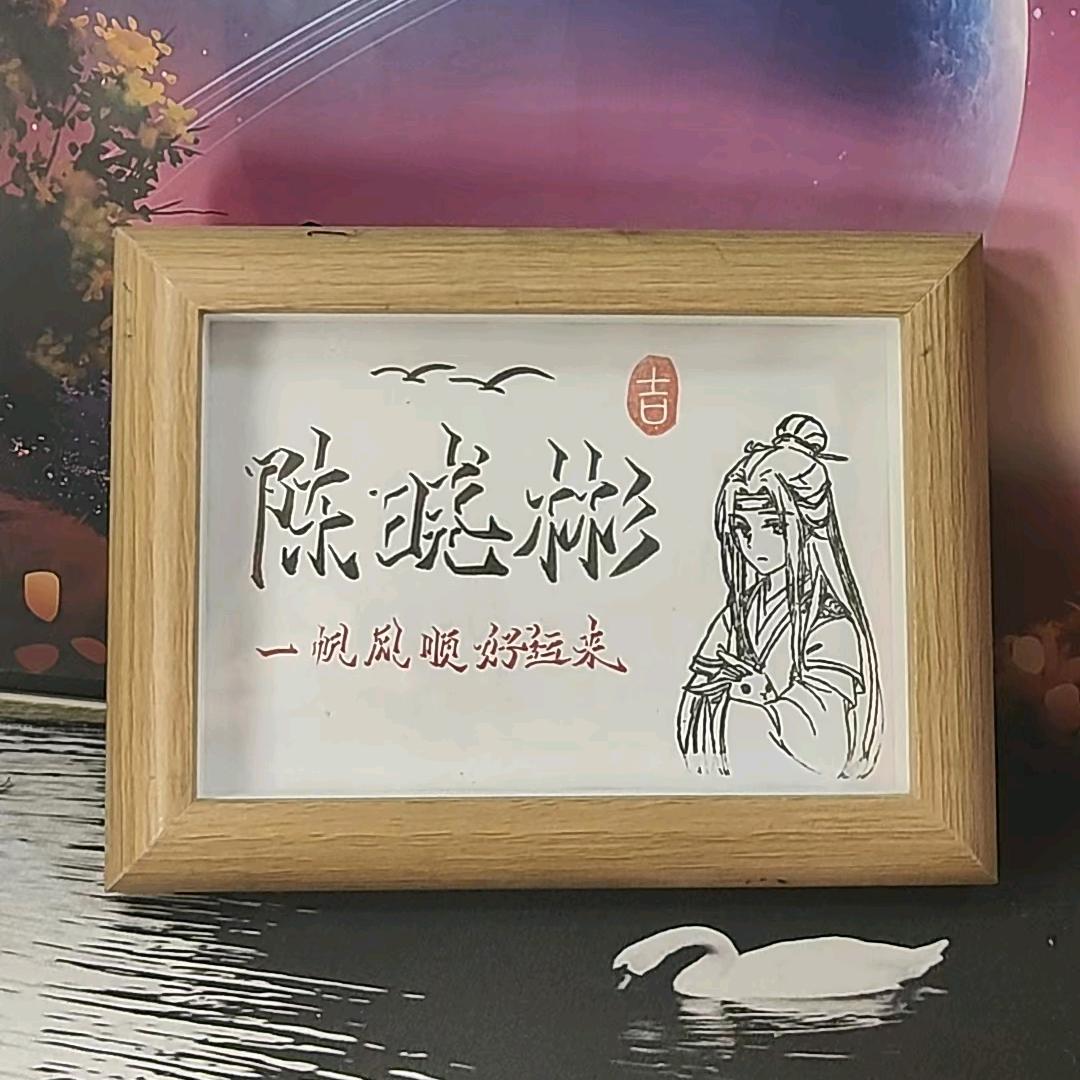 吉
陈晓彬
一帆风顺好运来